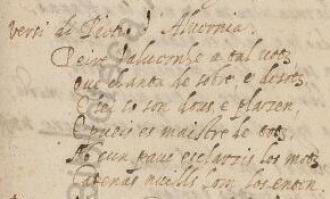 versi di Pietro d'Alvernia.
Peire d'alvernhe a tal votz
que chanta de sobre, e desotz
e siei so son dous, e plazen,
e pueis es maistre de totz
Ab c'un pauc esclarzis los motz
c'apenas nuills hom los enten.